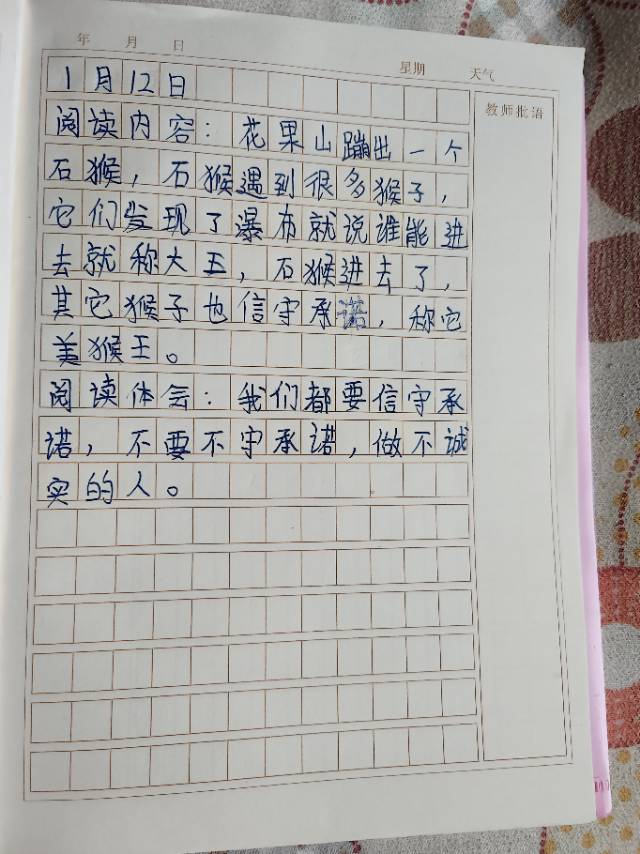 年 月 日 星期 天气
教师批语
1月12日
阅读内容：花果山蹦出一个
石猴，石猴遇到很多猴子，
它们发现了瀑布就说谁能进
去就称大王，石猴进去了，
其它猴子也信守承诺，称它
美猴王。
阅读体会：我们都要信守承
诺，不要不守承诺，做不诚
实的人。